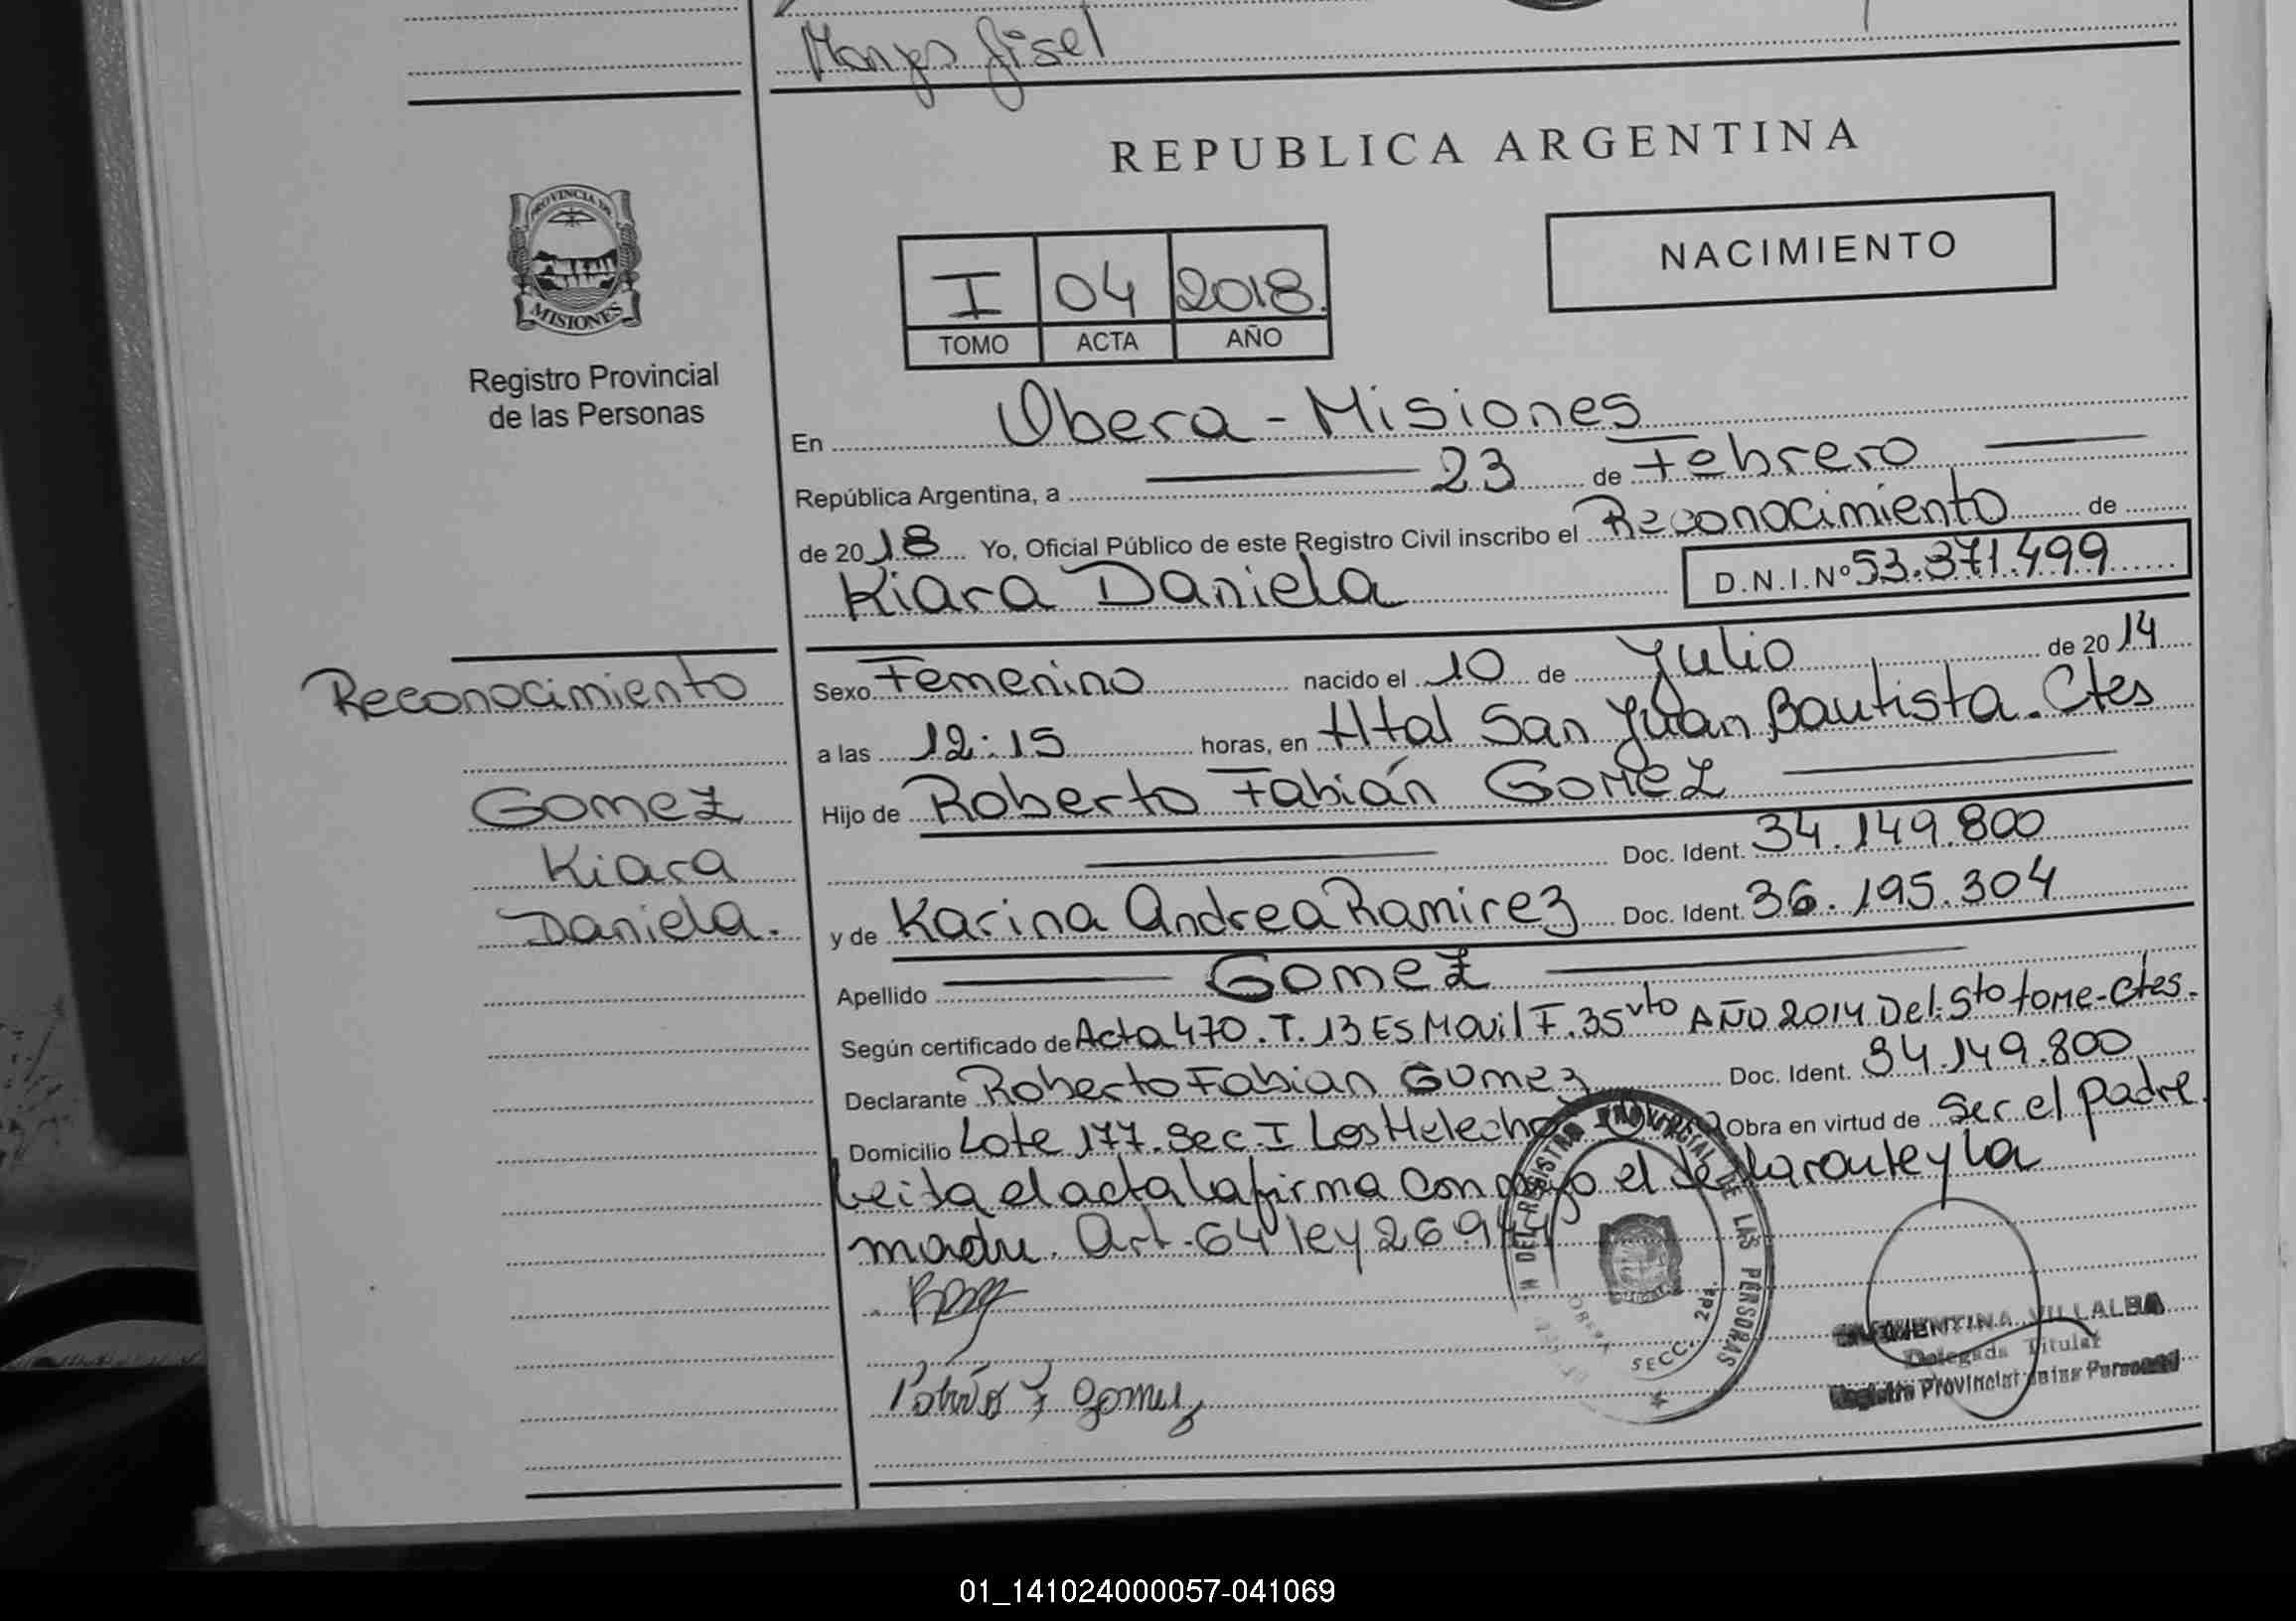 Gisel
REPUBLICA ARGENTINA
PROVINCIA DE
MISIONES
NACIMIENTO
I 04 2018.
TOMO ACTA AÑO
Registro Provincial
de las Personas
En Obera - Misiones
República Argentina, a 23 de Febrero
de 2018 Yo, Oficial Público de este Registro Civil inscribo el Reconocimiento de
Kiara Daniela D.N.I.Nº 53.371.499
Reconocimiento
Gomez
Kiara
Daniela.
Sexo Femenino nacido el 10 de Julio de 2014
a las 12:15 horas, en Htal San Juan Bautista. Ctes
Hijo de Roberto Fabián GOMEZ
Doc. Ident. 34.149.800
y de Karina Andrea Ramirez Doc. Ident. 36.195.304
Apellido Gomez
Según certificado de Acta 470. T. 13 Es Movil F. 35 vto AÑO 2014 Del. Sto tome-Ctes.
Declarante Roberto Fabian Gomez Doc. Ident. 34.149.800
Domicilio Lote 177. Sec. I Los Helechos Obra en virtud de Ser el padre.
Leida el acta la firma con migo el declarante y la
madre. Art. 64 ley 26.994
DEL REGISTRO PROVINCIAL DE LAS PERSONAS
SECC. 2da.
VILLALBA
Delegada Titular
Registro Provincial de las Personas
F Gomez
01_141024000057-041069